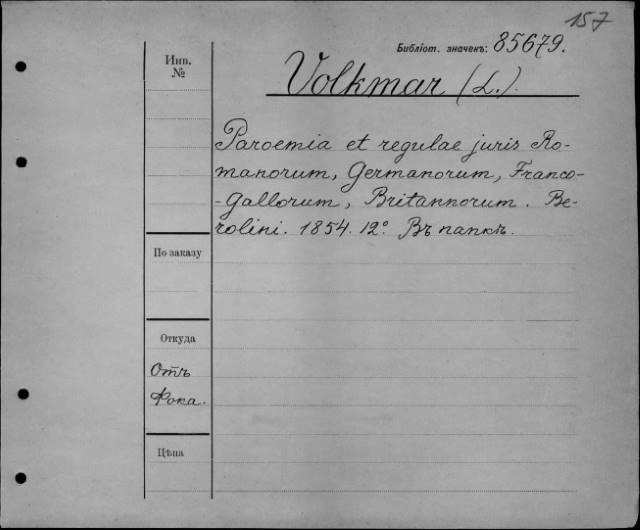 157
Библіот. значекъ: 85679.
Инв.
№
Volkmar (L.).
Paroemia et regulae juris Ro-
manorum, Germanorum, Franco-
-Gallorum, Britannorum. Be-
rolini. 1854. 12° Въ папкѣ.
По заказу
Откуда
Отъ
Фока.
Цѣна